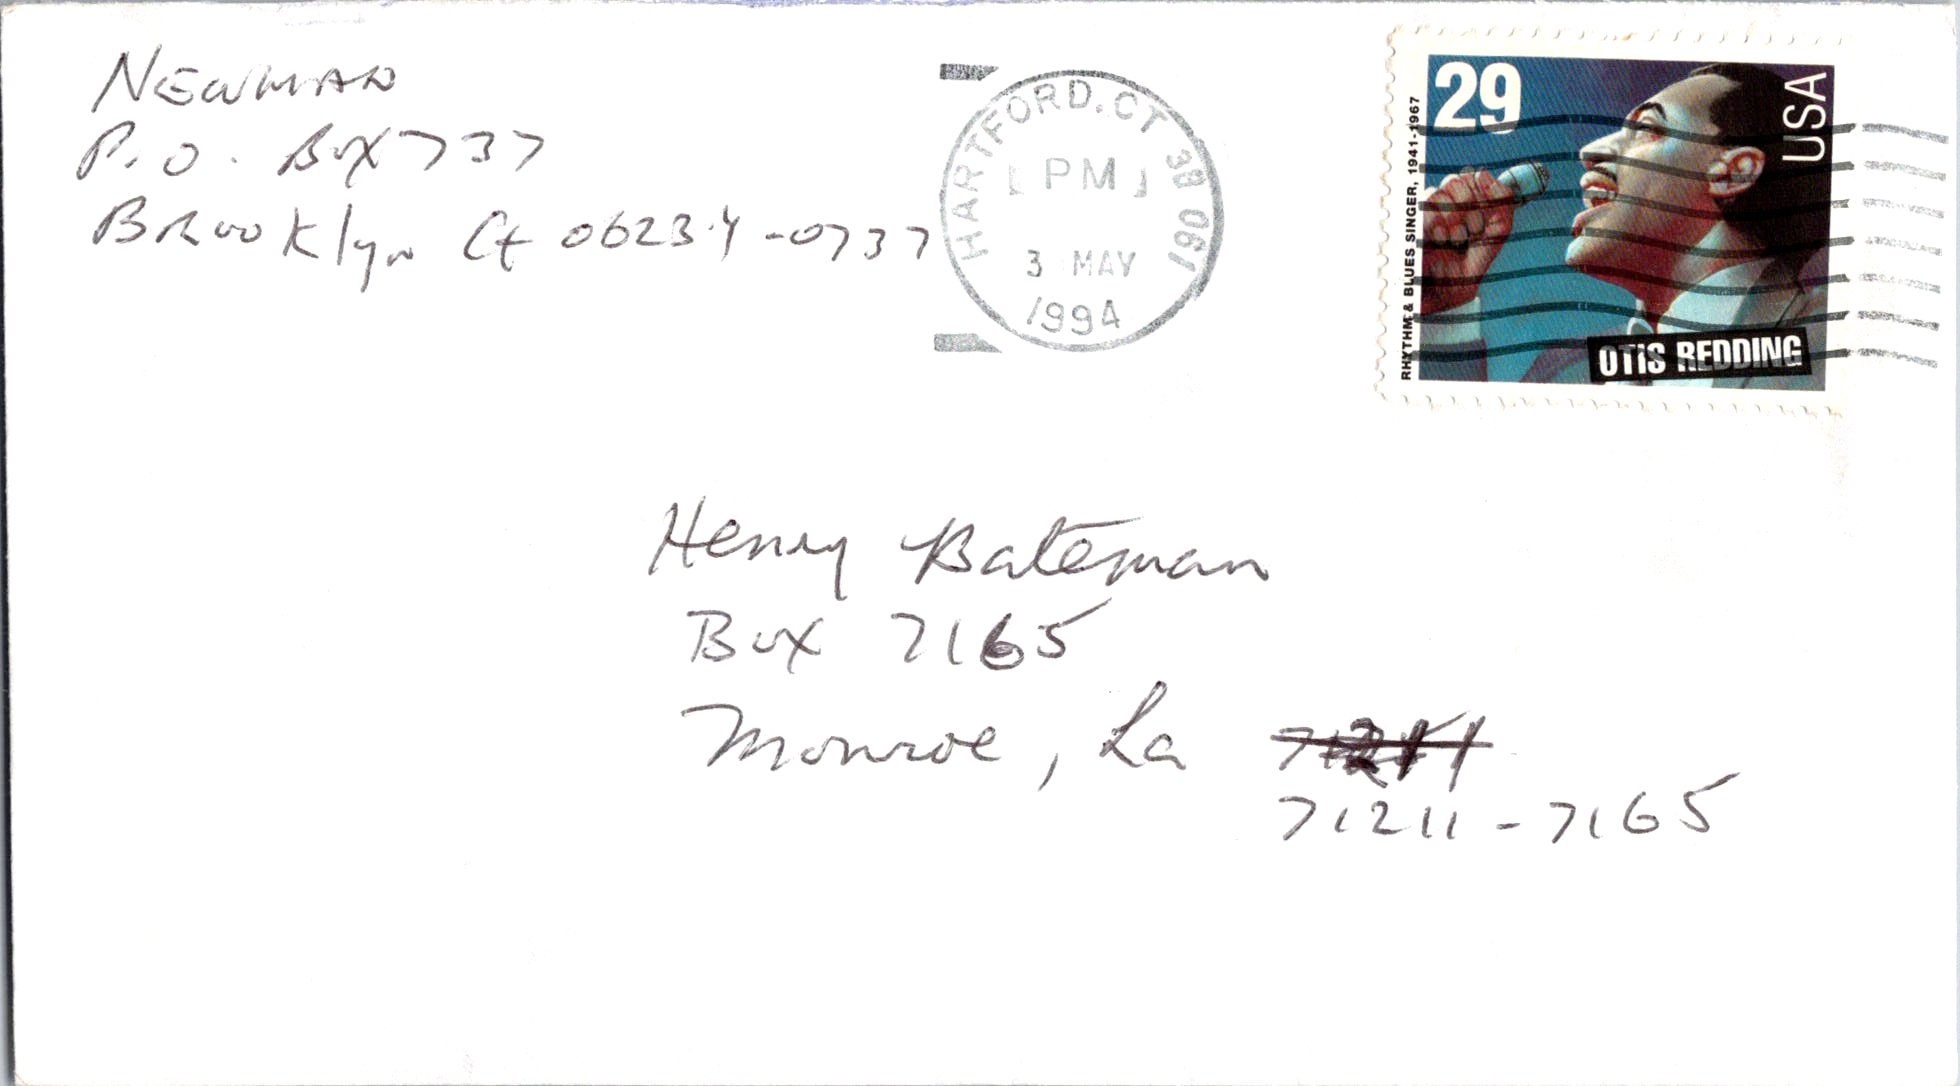 Newman
P.O. Box 737
Brooklyn Ct 06234-0737
HARTFORD, CT 38 061
PM
3 MAY
1994
29
USA
RHYTHM & BLUES SINGER, 1941-1967
OTIS REDDING
Henry Bateman
Box 7165
Monroe, La
71211-7165